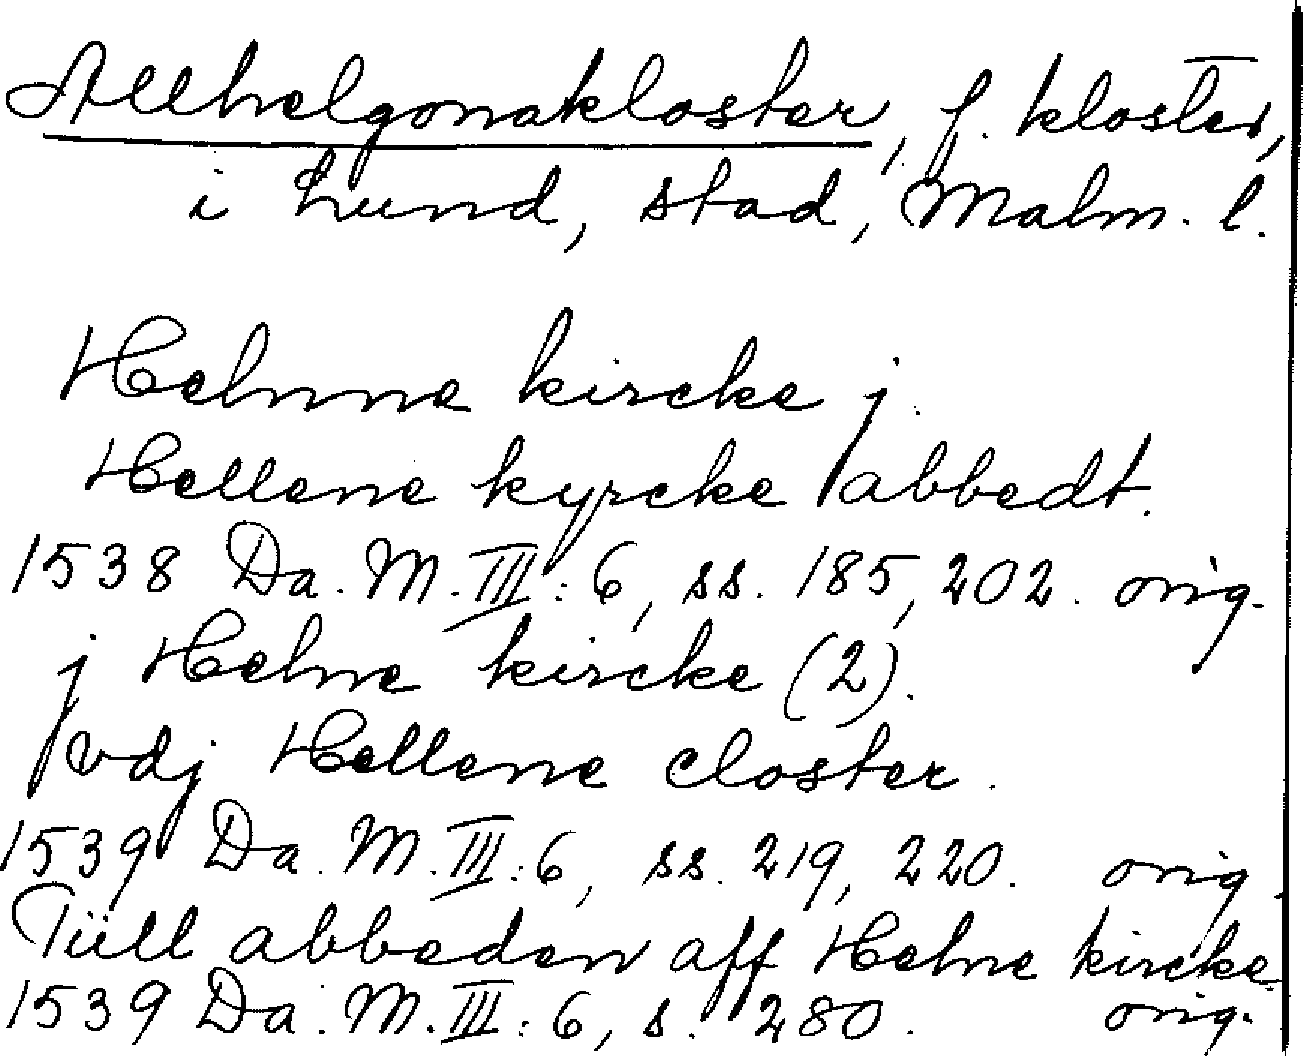 Allhelgonakloster, f. kloster,
i Lund, stad, Malm. l.
Helnne kircke j.
Hellene kyrcke abbedt.
1538 Da. M. III: 6, ss. 185, 202. orig.
j Helne kircke (2).
vdj Hellene closter.
1539 Da. M. III: 6, ss. 219, 220. orig.
Tüll abbeden aff Helne kircke
1539 Da. M. III: 6, s. 280. orig.